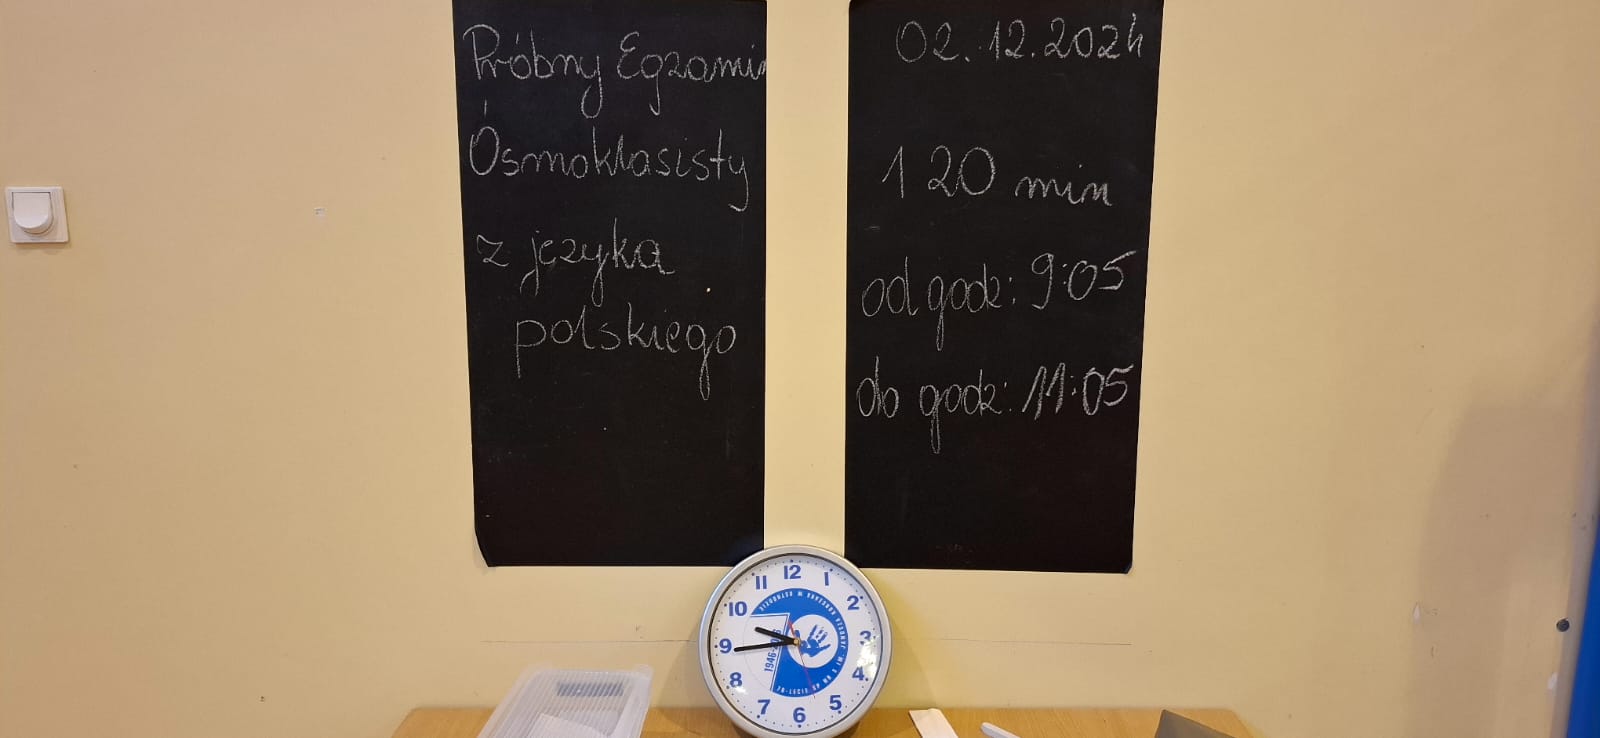 Próbny Egzamin
Ósmoklasisty
z języka
polskiego
02.12.2024
120 min
od godz: 9:05
do godz: 11:05
12
1
2
3
4
5
6
7
8
9
10
11
70-LECIE